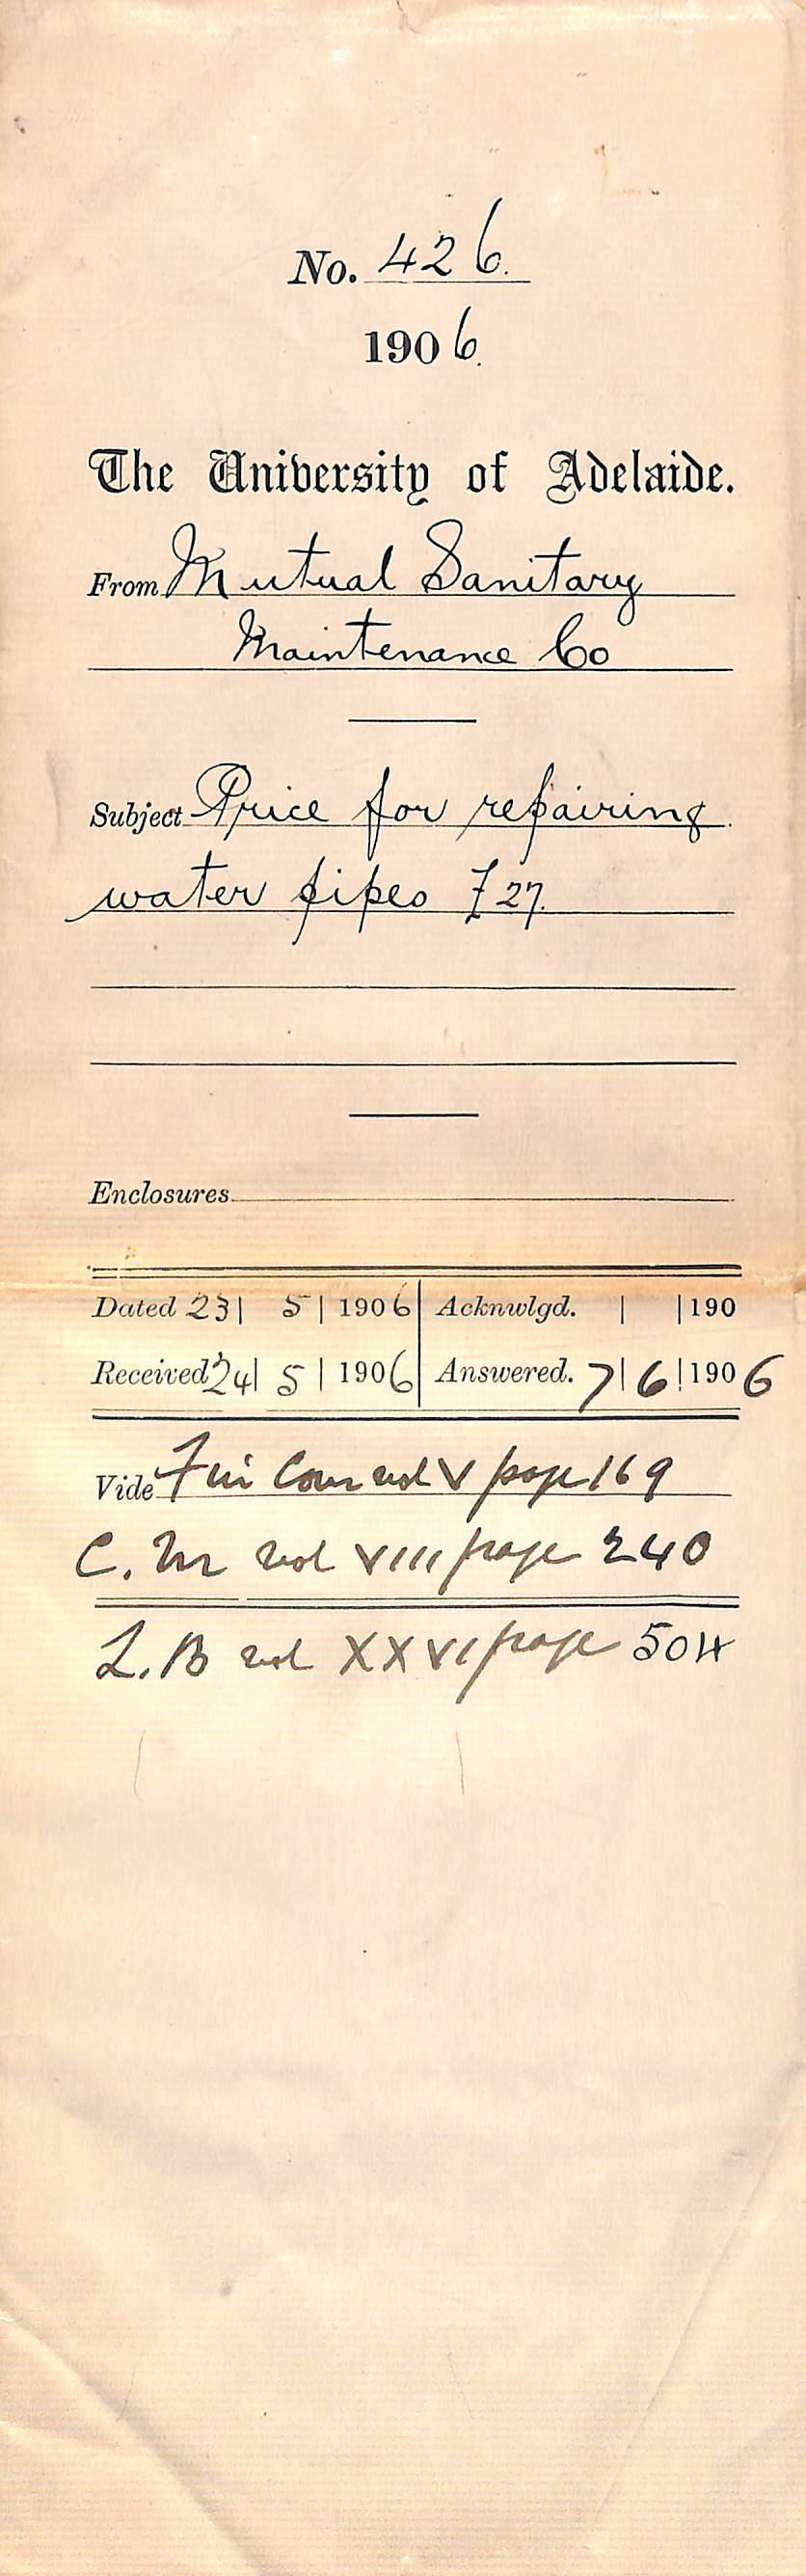 No. 426.
1906.
The University of Adelaide.
From Mutual Sanitary
Maintenance Co
Subject Price for repairing
water pipes £27.
Enclosures
Dated 23| 5 | 1906 Acknwlgd. | |190
Received 24| 5 | 1906 Answered. 7|6|1906
Vide Fin Com vol V page 169
C. M vol VIII page 240
L. B vol XXVI page 504